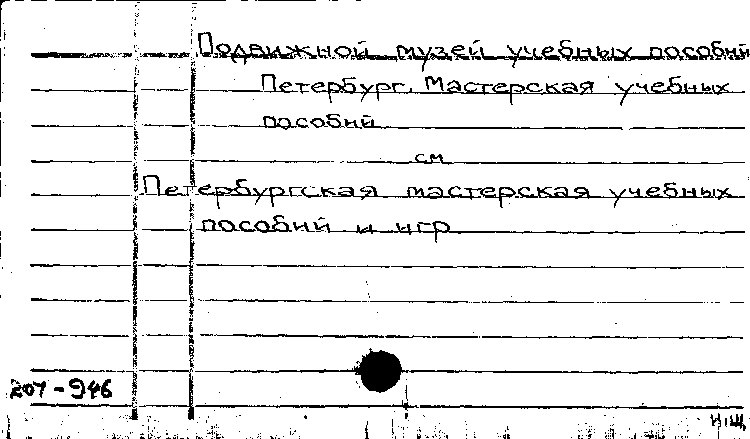 Подвижной музей учебных пособий
Петербург. Мастерская учебных
пособий
см
Петербургская мастерская учебных
пособий и игр
207-946